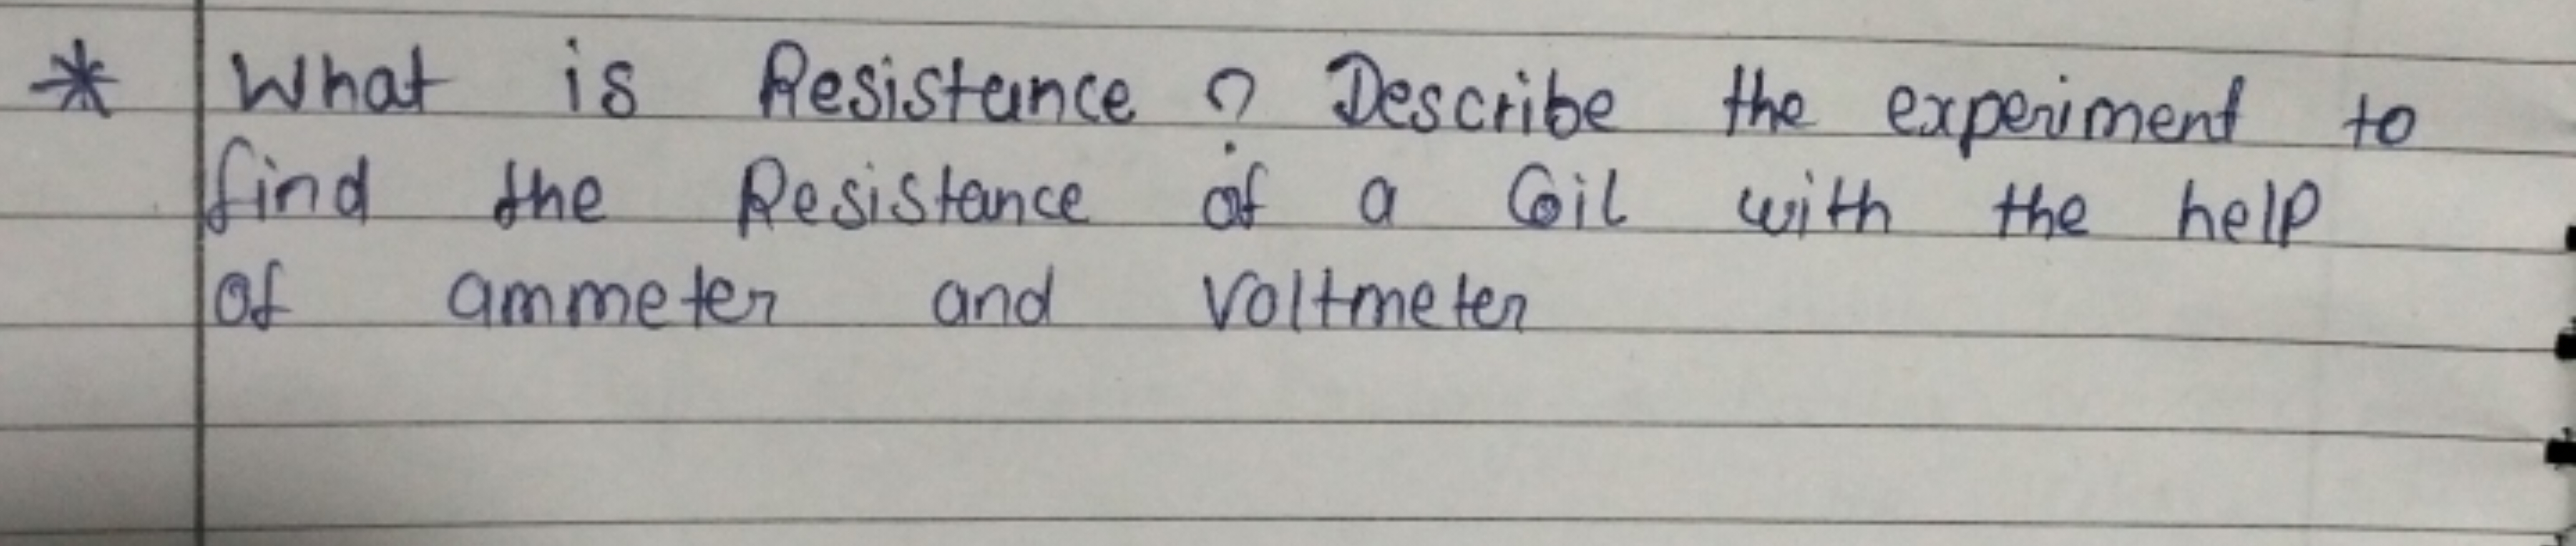 * What is Resistance ? Describe the experiment to
find the Resistance of a Coil with the help
of ammeter and voltmeter